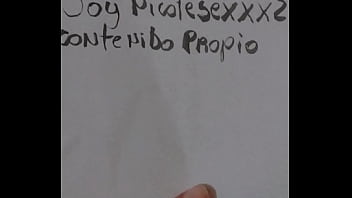 Soy Nicolesexxx2
Contenido Propio